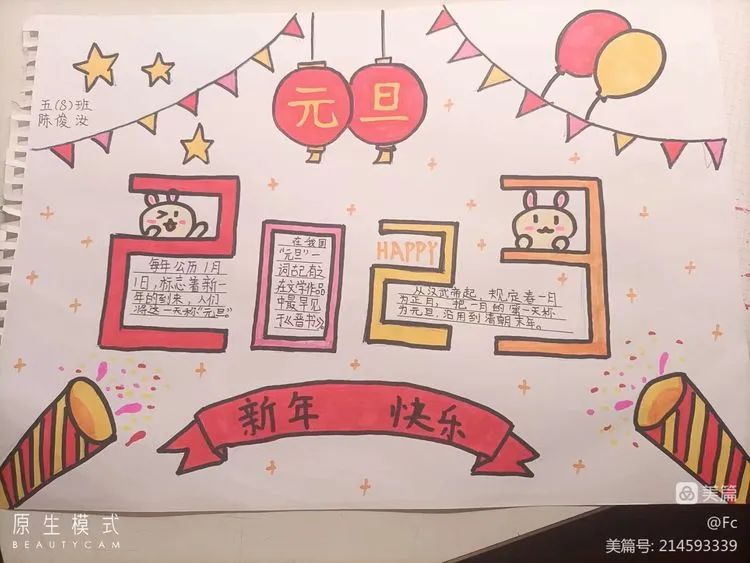 五(8)班
陈俊汝
元旦
2023
每年公历1月
1日,标志着新一
年的到来,人们
将这一天称“元旦”
在我国
“元旦”一
词古已有之
在文学作品
中最早见
于《晋书》。
HAPPY
从汉武帝起,规定春一月
为正月,把一月的第一天称
为元旦,沿用到清朝末年。
新年 快乐
原生模式
BEAUTYCAM
美篇
@Fc
美篇号: 214593339